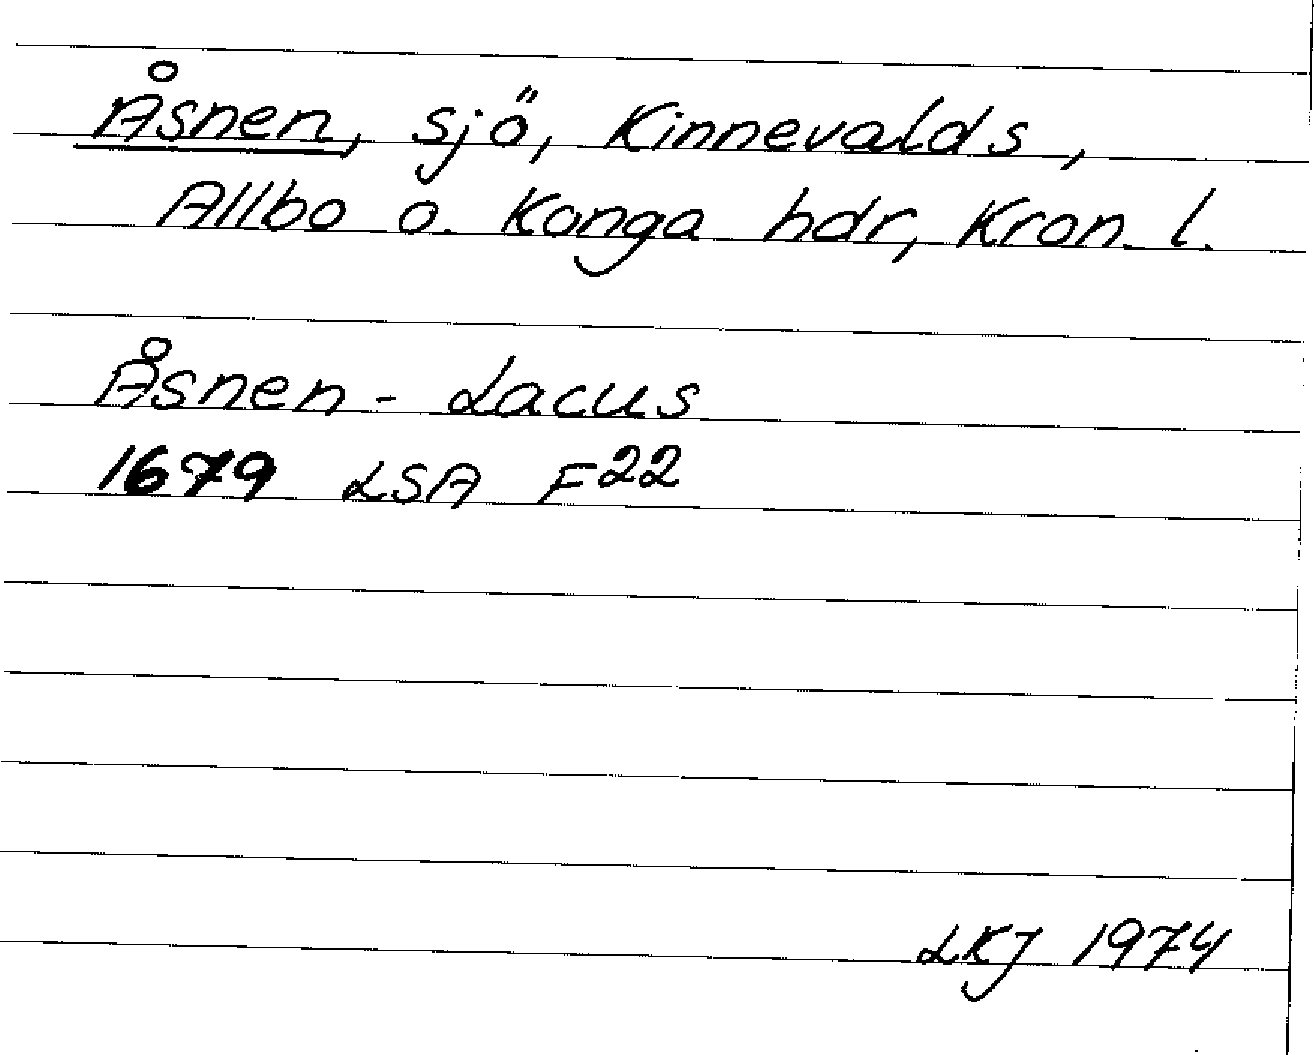 Åsnen, sjö, Kinnevalds,
Allbo o. Konga hdr, Kron. l.
Åsnen - Lacus
1679 LSA F22
LKJ 1974